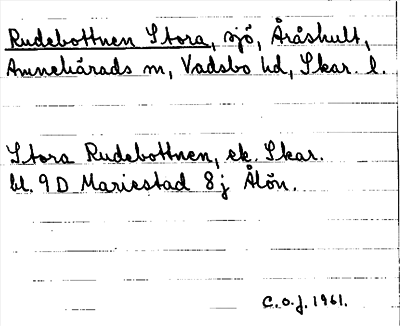 Rudebottnen Stora, sjö, Åråshult,
Amnehärads sn, Vadsbo hd, Skar. l.
Stora Rudebottnen, ek. Skar.
bl. 9D Mariestad 8j Ålön.
C.O.J. 1961.